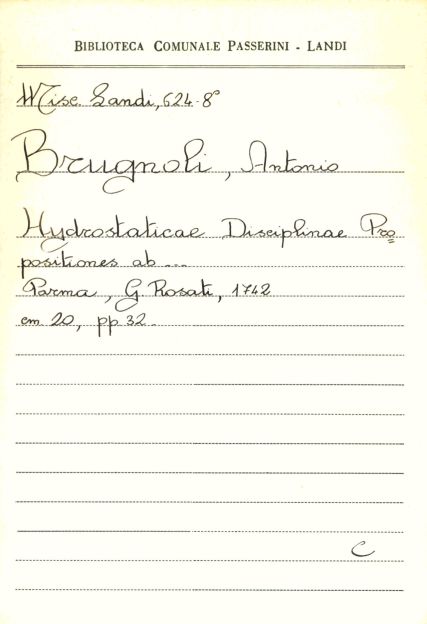 BIBLIOTECA COMUNALE PASSERINI - LANDI
Misc. Landi, 624-8°
Brugnoli, Antonio
Hydrostaticae Disciplinae Pro=
positiones ab ...
Parma, G. Rosati, 1742
cm 20, pp 32.
C